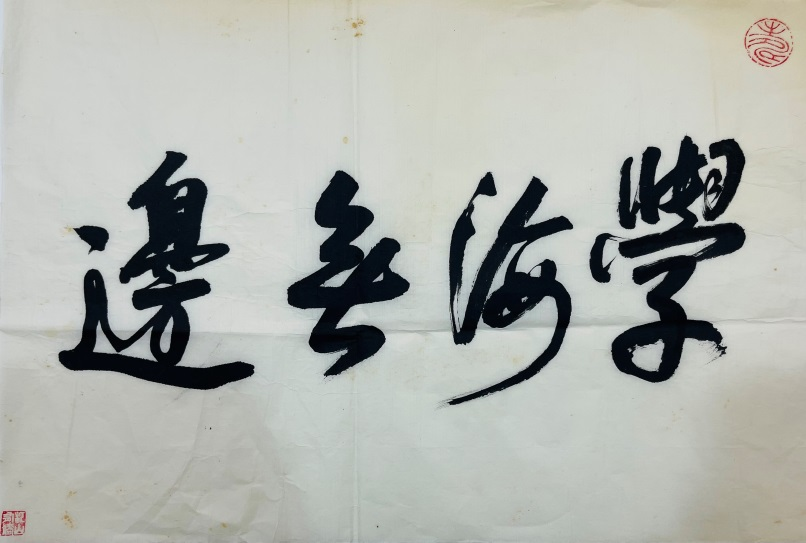 學海無邊